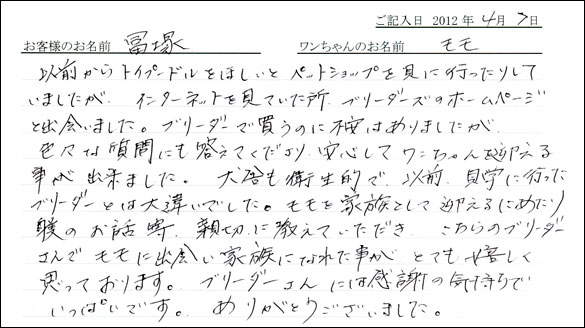 ご記入日 2012年4月7日
お客様のお名前 冨塚 ワンちゃんのお名前 モモ
以前からトイプードルをほしいとペットショップを見に行ったりして
いましたが、インターネットを見ていた所、ブリーダーズのホームページ
と出会いました。ブリーダーで買うのに不安はありましたが、
色々な質問にも答えてくださり、安心してワンちゃんを迎える
事が出来ました。犬舎も衛生的で、以前、見学に行った
ブリーダーとは大違いでした。モモを家族として迎えるにあたり
躾のお話等、親切に教えていただき、こちらのブリーダー
さんでモモに出会い家族になれた事が、とても嬉しく
思っております。ブリーダーさんには感謝の気持ちで
いっぱいです。ありがとうございました。